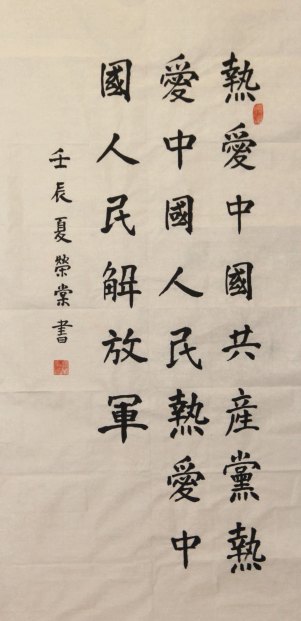 熱愛中國共産黨熱
愛中國人民熱愛中
國人民解放軍
壬辰夏榮棠書